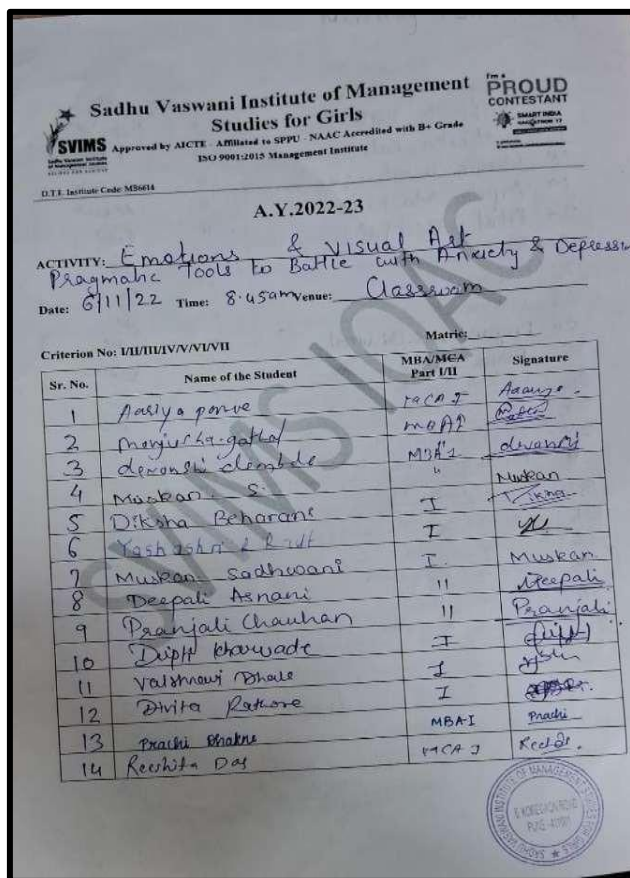 Sadhu Vaswani Institute of Management
Studies for Girls
Approved by AICTE - Affiliated to SPPU - NAAC Accredited with B+ Grade
ISO 9001:2015 Management Institute
SVIMS
I'm a
PROUD
CONTESTANT
SMART INDIA
D.T.E. Institute Code MB6614
A.Y.2022-23
ACTIVITY: Emotions & Visual Art
Pragmatic Tools to Battle with Anxiety & Depression
Date: 6/11/22 Time: 8.45am Venue: Classroom
Criterion No: I/II/III/IV/V/VI/VII Matric:
Sr. No. Name of the Student MBA/MCA Part I/II Signature
1 Aasiya MCA I
2 MBA I
3 MBA I devanshi
4 Muskan S. " Muskan
5 Diksha Beharani I
6 I
7 Muskan Sadhwani I. Muskan
8 Deepali Asnani " Deepali
9 Pranjali Chauhan " Pranjali
10 I
11 Vaishnavi Dhale I
12 Divita Rathore I
13 Prachi MBA-I Prachi
14 Reeshita Das MCA I
SVIMS IQAC
SADHU VASWANI INSTITUTE OF MANAGEMENT STUDIES FOR GIRLS
6 KOREGAON ROAD
PUNE-411001